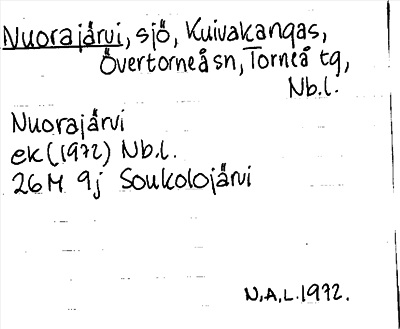 Nuorajärvi, sjö, Kuivakangas,
Övertorneå sn, Torneå tg,
Nb.l.
Nuorajärvi
ek (1972) Nb.l.
26M 9j Soukolojärvi
N.A.L. 1972.